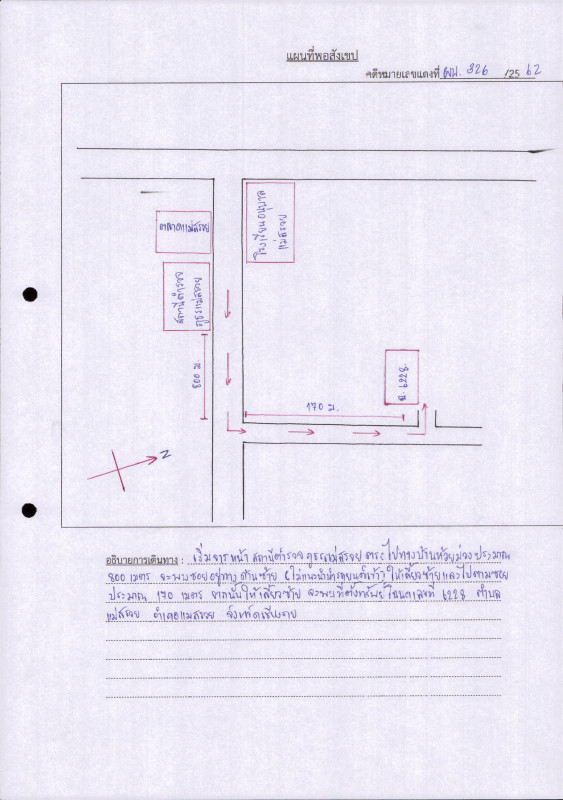 แผนที่พอสังเขป
คดีหมายเลขแดงที่ ผบ. 326 /25 62
ตลาดแม่สรวย
โรงเรียนอนุบาล
แม่สรวย
สถานีตำรวจ
ภูธรแม่สรวย
800 ม.
170 ม.
ฉ. 6228
N
อธิบายการเดินทาง : เริ่มจากหน้า สถานีตำรวจภูธรแม่สรวย ตรงไปทางบ้านห้วยม่วง ประมาณ
800 เมตร จะพบซอยอยู่ทางด้านซ้าย (ไม่แนะนำนำรถยนต์เข้า) ให้เลี้ยวซ้ายและไปตามซอย
ประมาณ 170 เมตร จากนั้นให้เลี้ยวซ้าย จะพบที่ตั้งทรัพย์ โฉนดเลขที่ 6228 ตำบล
แม่สรวย อำเภอแม่สรวย จังหวัดเชียงราย